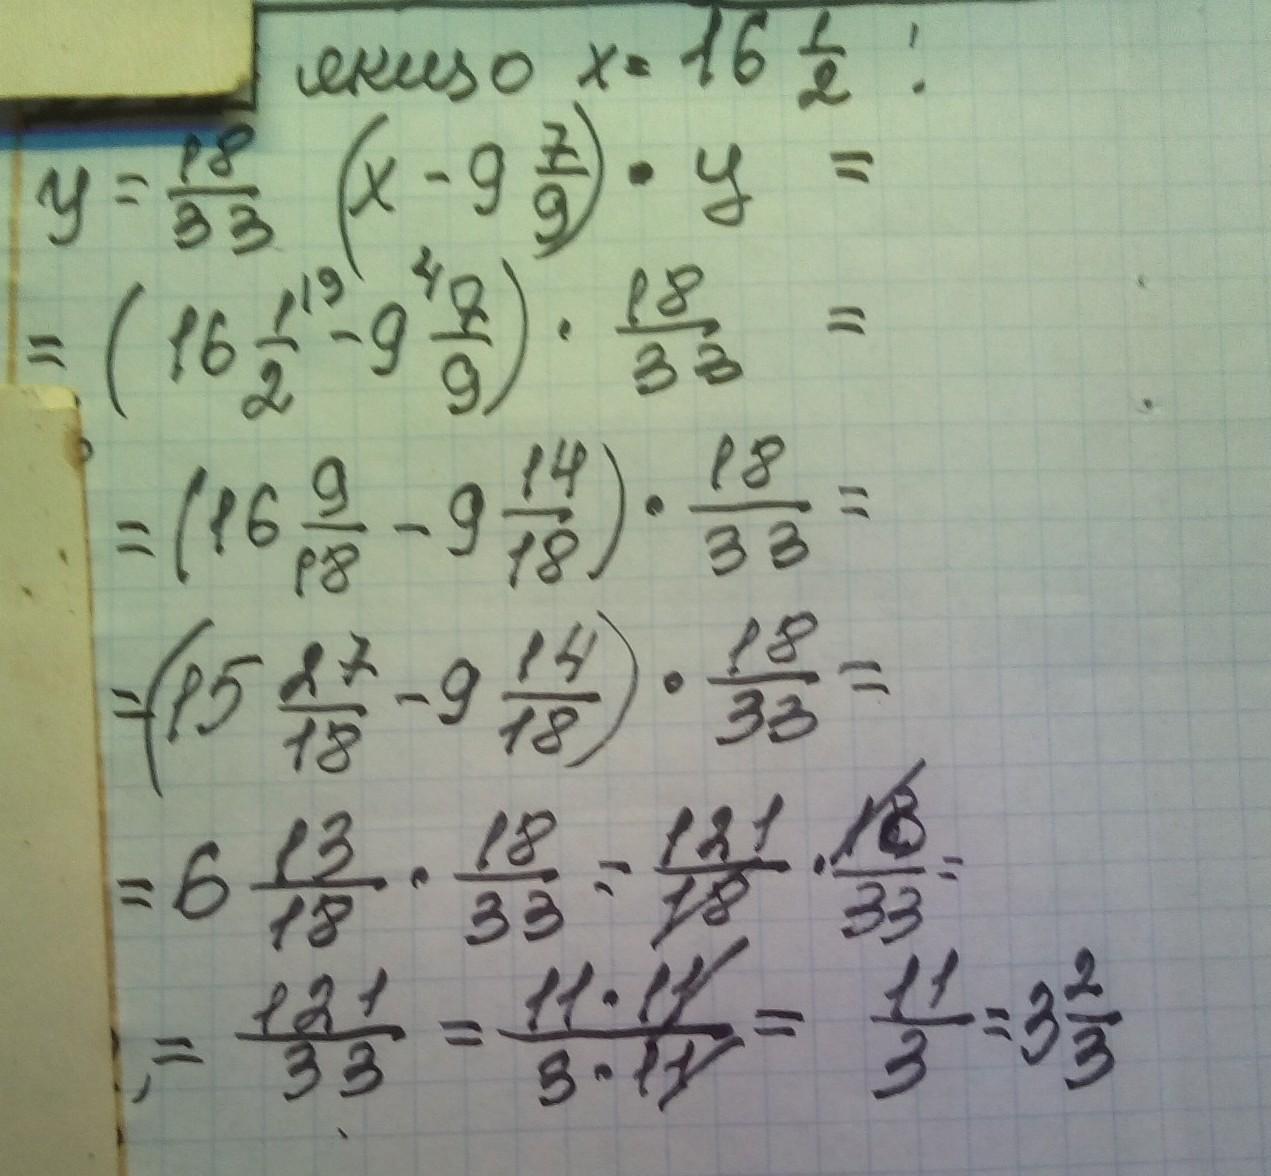 якщо x = 16 1/2 ;
y = 18/33 (x - 9 7/9) · y =
= (16 1/2 - 9 7/9) · 18/33 =
= (16 9/18 - 9 14/18) · 18/33 =
= (15 27/18 - 9 14/18) · 18/33 =
= 6 13/18 · 18/33 = 121/18 · 18/33 =
= 121/33 = 11·11/3·11 = 11/3 = 3 2/3